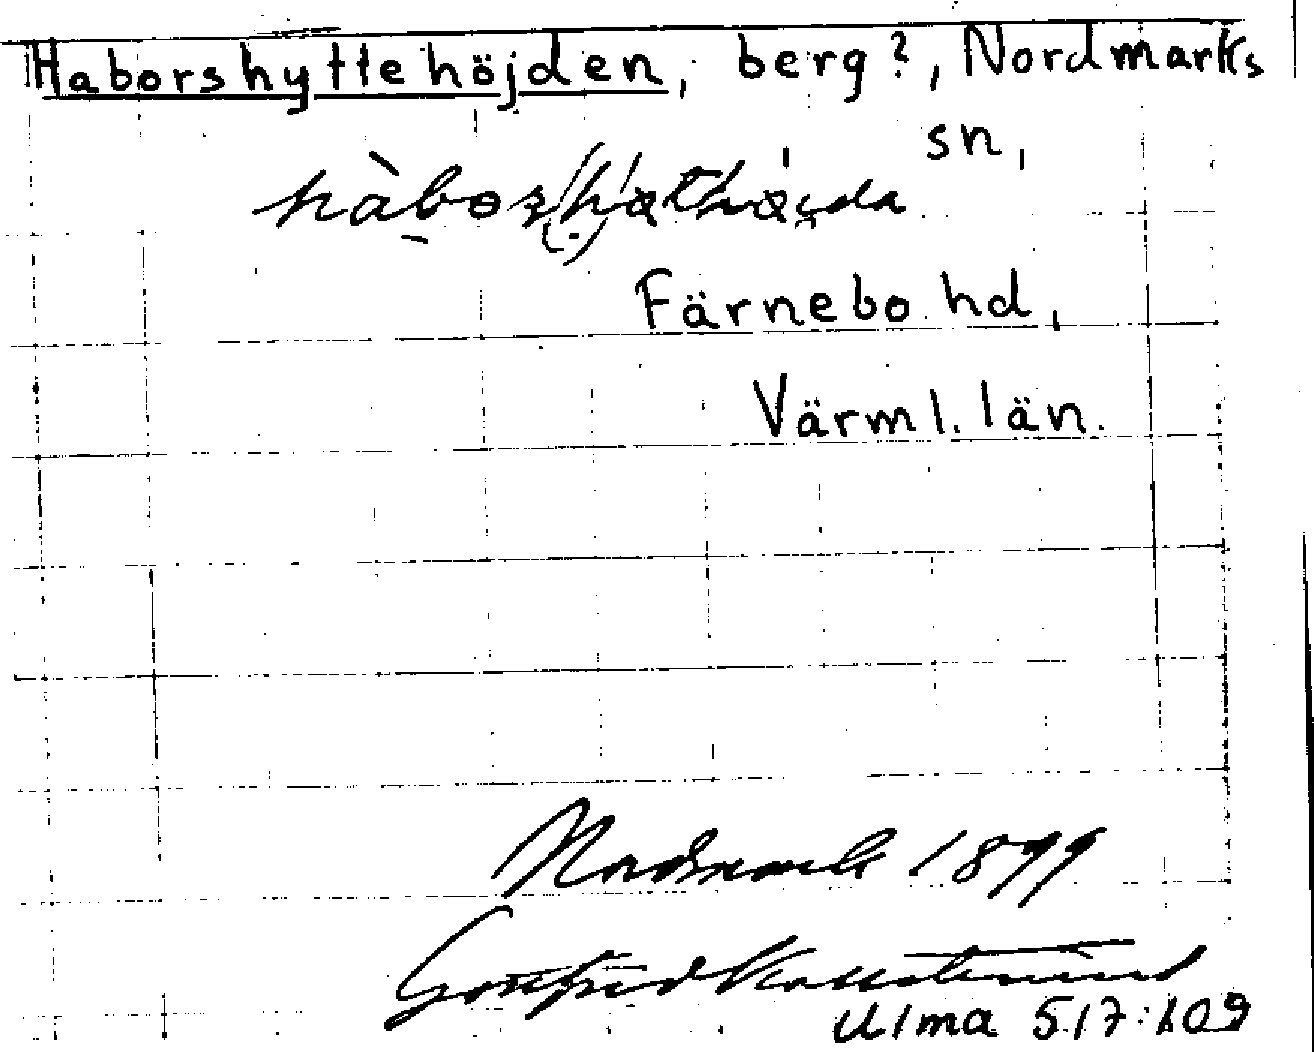 Haborshyttehöjden, berg?, Nordmarks
sn,
Färnebo hd,
Värml. län.
Nordmark 1899
Gottfrid Kallstenius
Ulma 517:109